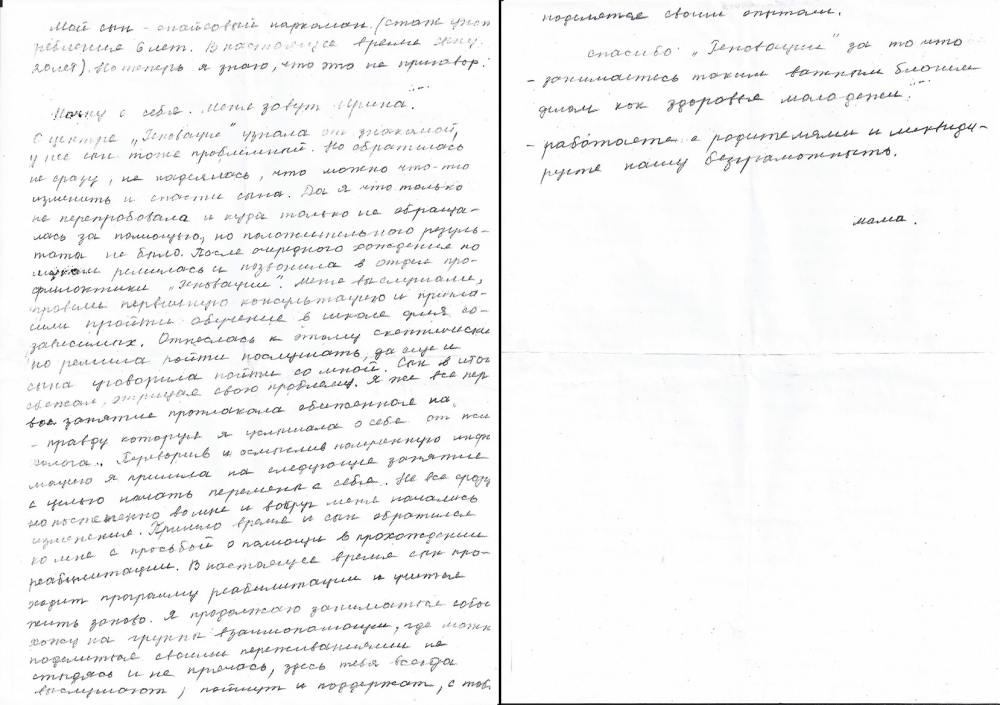 Мой сын - спайсовый наркоман. (стаж упот
ребления 6 лет. В настоящее время ему
20 лет). Но теперь я знаю, что это не приговор.
Начну с себя. Меня зовут Ирина.
О центре „Геновация" узнала от знакомой,
у неё сын тоже проблемный. Но обратилась
не сразу, не надеялась, что можно что-то
изменить и спасти сына. Да я что только
не перепробовала и куда только не обраща-
лась за помощью, но положительного резуль-
тата не было. После очередного хождения по
мукам решилась и позвонила в отдел про-
филактики „Геновации". Меня выслушали,
провели первичную консультацию и пригла-
сили пройти обучение в школе для со-
зависимых. Отнеслась к этому скептически
но решила пойти послушать, да еще и
сына уговорила пойти со мной. Сын в итог
сбежал, отрицая свою проблему. Я же все пер
вое занятие проплакала обиженная на
- правду которую я услышала о себе от пси
холога. Переварив и осмыслив полученную инфор
мацию я пришла на следующее занятие
с целью начать перемены с себя. Не все сразу
но постепенно во мне и вокруг меня начались
изменения. Пришло время и сын обратился
ко мне с просьбой о помощи в прохождении
реабилитации. В настоящее время сын про-
ходит программу реабилитации и учится
жить заново. Я продолжаю заниматься собой
хожу на группы взаимопомощи, где можн
поделиться своими переживаниями не
стыдясь и не прячась, здесь тебя всегда
выслушают, поймут и поддержат, с тоб
поделятся своим опытом.
спасибо „Геновации" за то что
- занимаетесь таким важным благим
делом как здоровье молодежи.
- работаете с родителями и ликвиди-
руете нашу безграмотность.
мама.